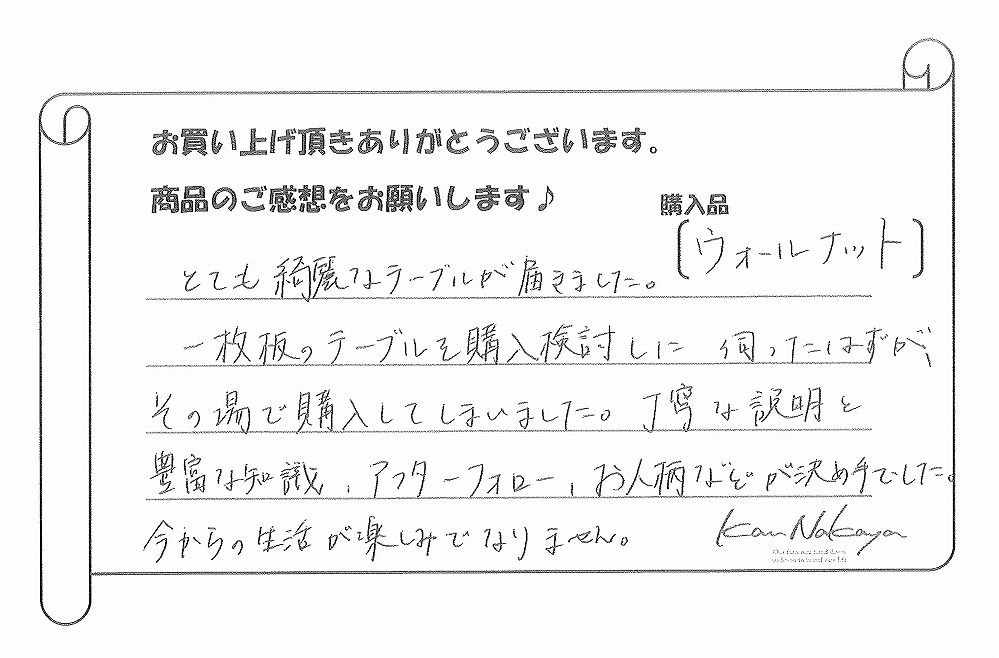 お買い上げ頂きありがとうございます。
商品のご感想をお願いします♪
購入品
〔ウォールナット〕
とても綺麗なテーブルが届きました。
一枚板のテーブルを購入検討しに 伺ったはずが、
その場で購入してしまいました。丁寧な説明と
豊富な知識、アフターフォロー、お人柄などが決め手でした。
今からの生活が楽しみでなりません。
Kan Nakaya